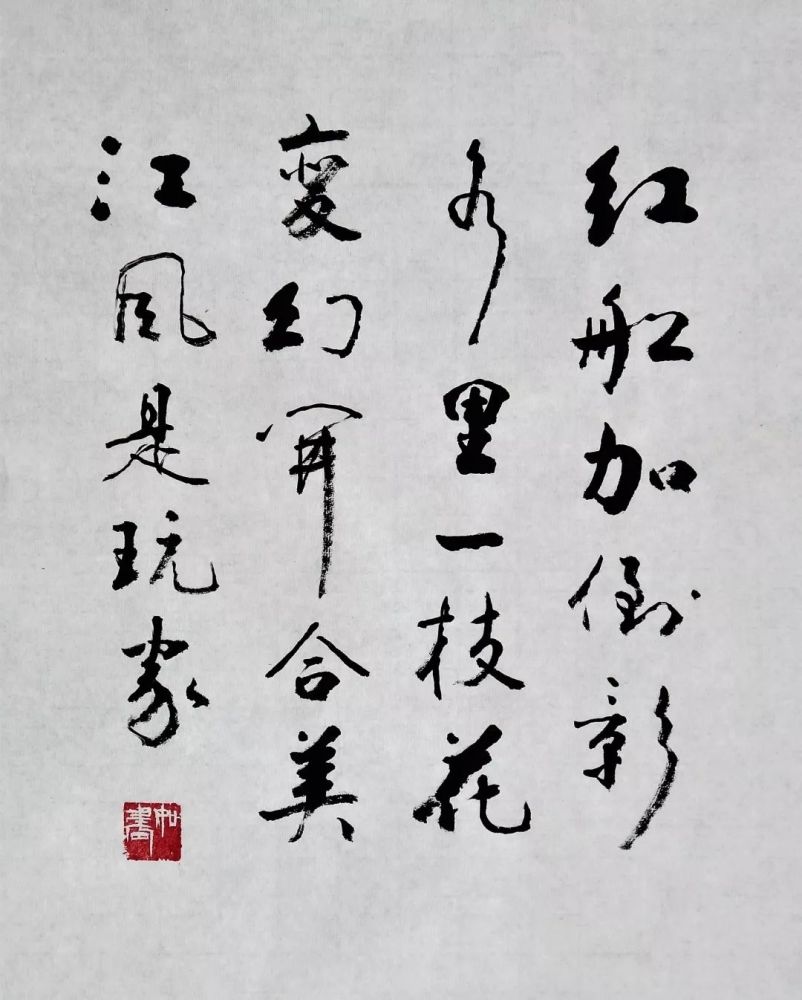 红船加倒彰
水里一枝花
变幻开合美
江风是玩家
如書